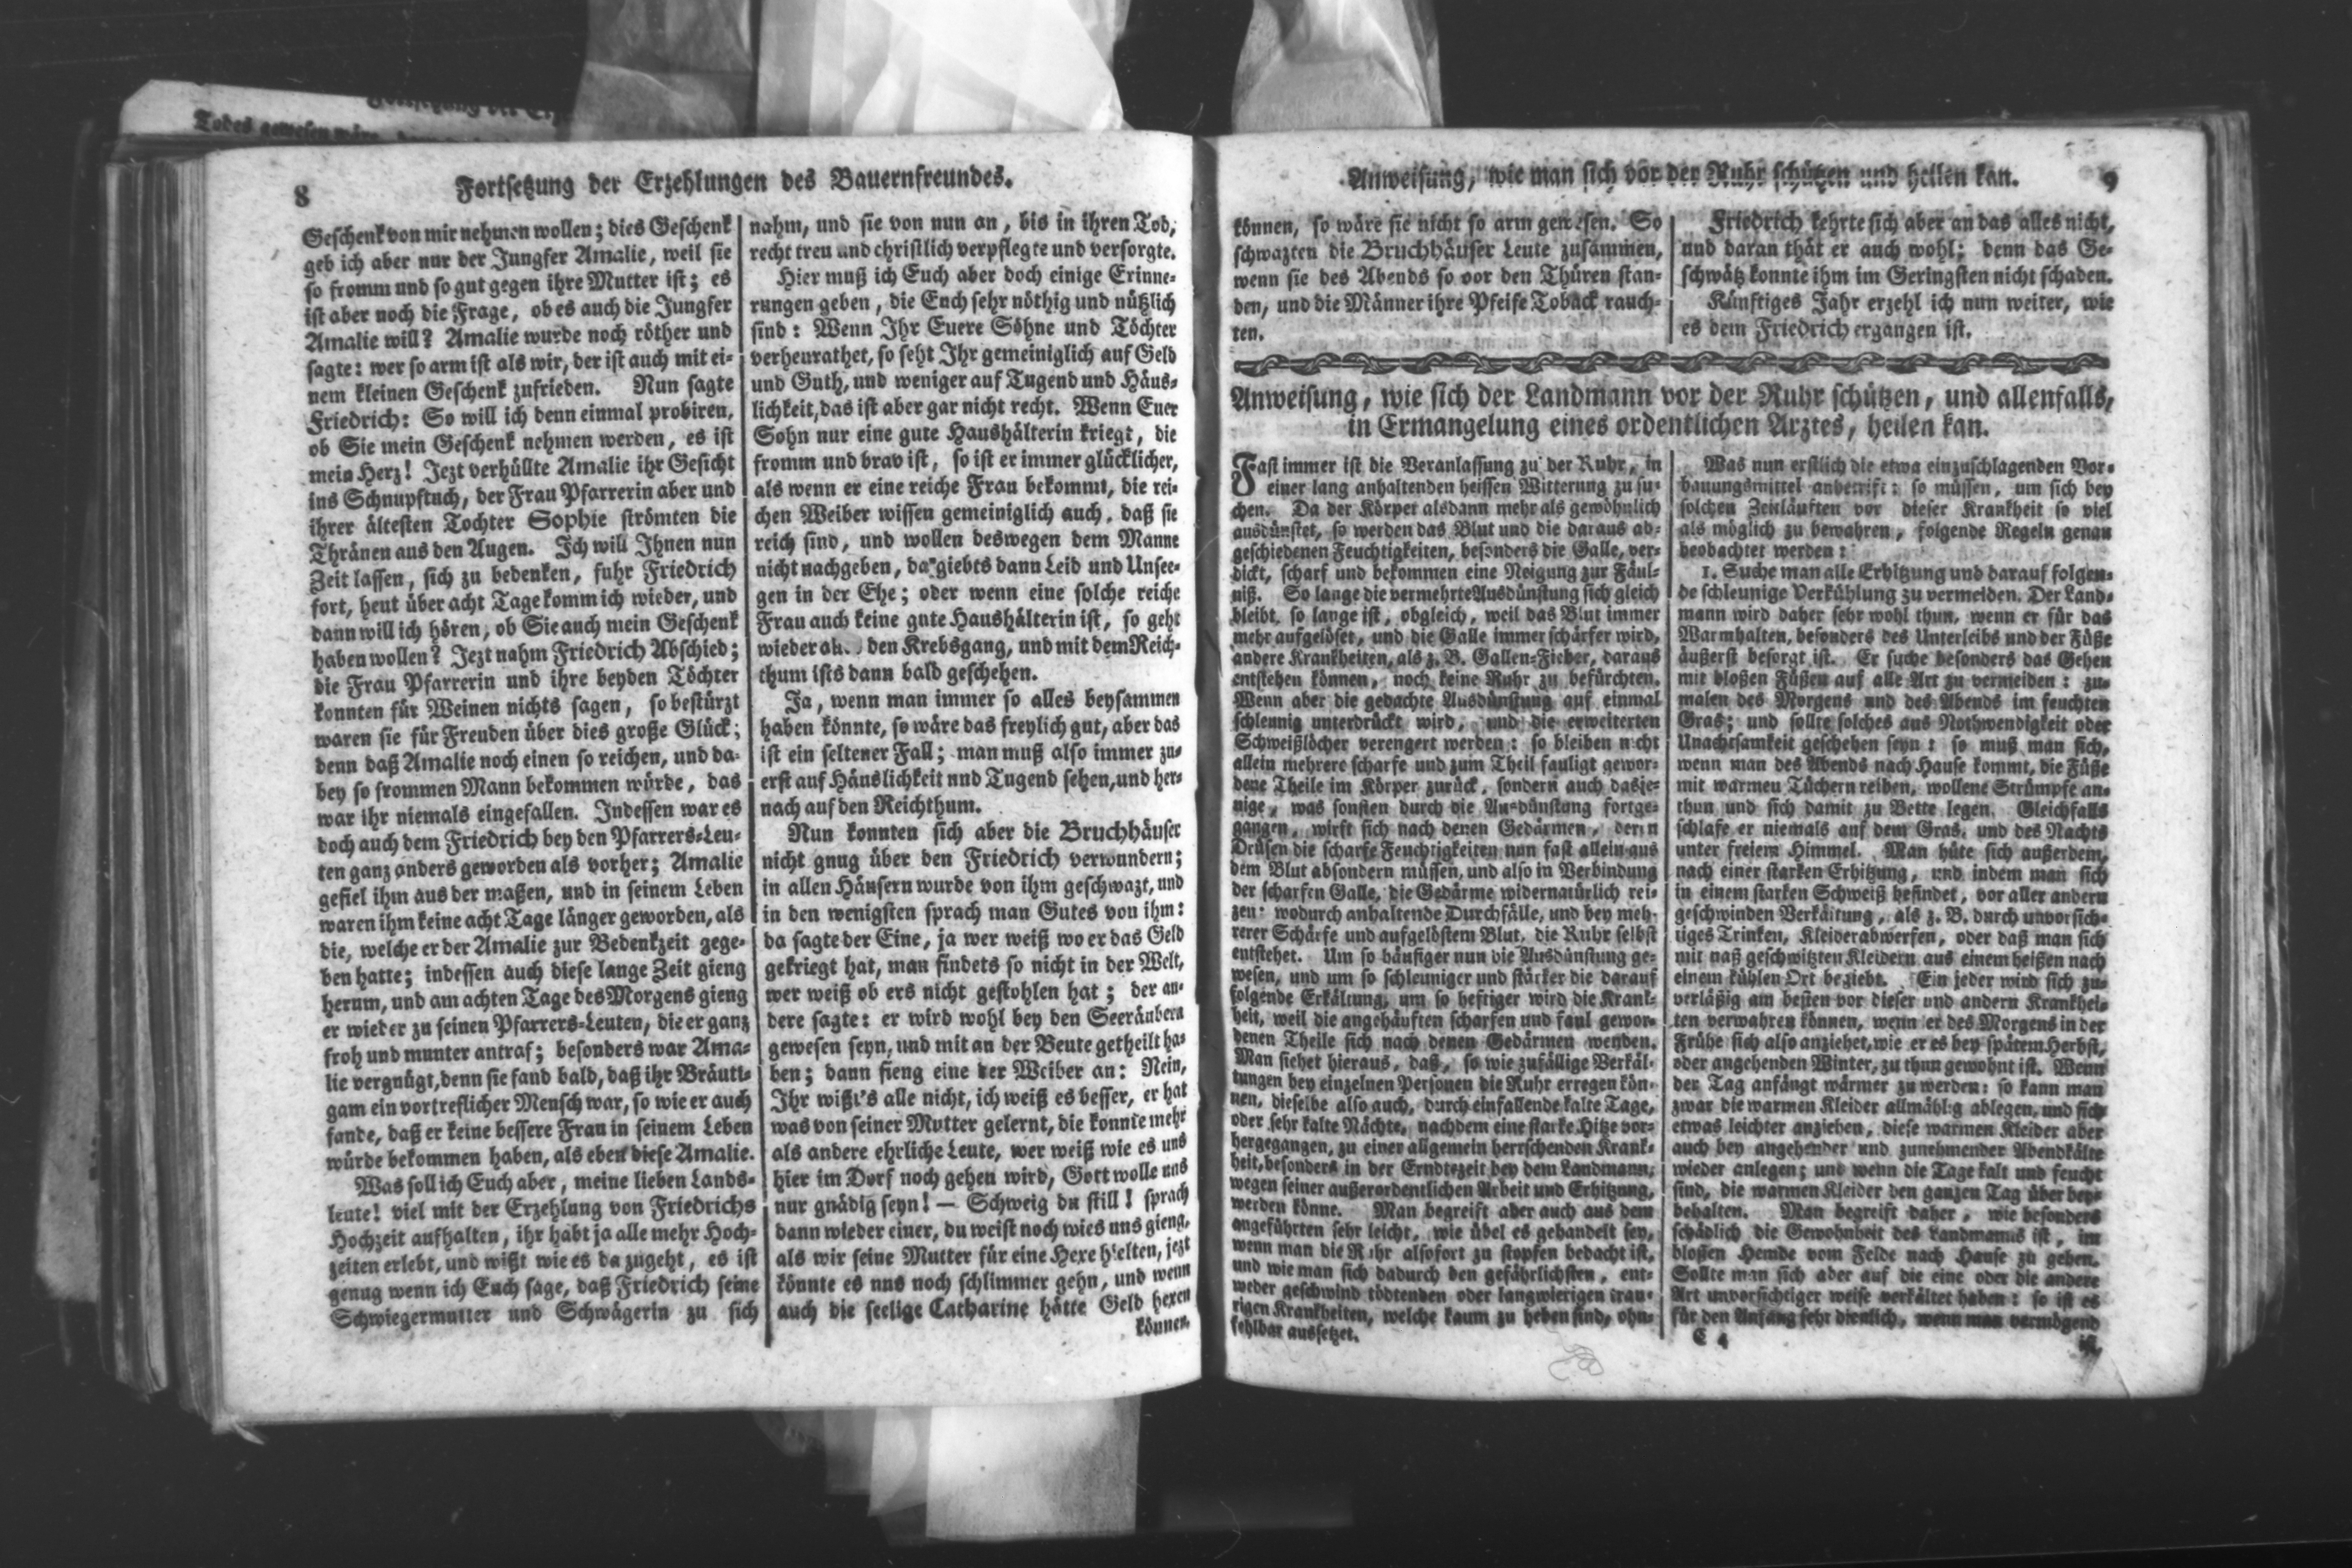 Todes gewesen wäre,
8
Fortsetzung der Erzehlungen des Bauernfreundes.
Geschenk von mir nehmen wollen; dies Geschenk
geb ich aber nur der Jungfer Amalie, weil sie
so fromm und so gut gegen ihre Mutter ist; es
ist aber noch die Frage, ob es auch die Jungfer
Amalie will? Amalie wurde noch röther und
sagte: wer so arm ist als wir, der ist auch mit ei-
nem kleinen Geschenk zufrieden. Nun sagte
Friedrich: So will ich denn einmal probiren,
ob Sie mein Geschenk nehmen werden, es ist
mein Herz! Jezt verhüllte Amalie ihr Gesicht
ins Schnupftuch, der Frau Pfarrerin aber und
ihrer ältesten Tochter Sophie strömten die
Thränen aus den Augen. Ich will Ihnen nun
Zeit lassen, sich zu bedenken, fuhr Friedrich
fort, heut über acht Tage komm ich wieder, und
dann will ich hören, ob Sie auch mein Geschenk
haben wollen? Jezt nahm Friedrich Abschied;
die Frau Pfarrerin und ihre beyden Töchter
konnten für Weinen nichts sagen, so bestürzt
waren sie für Freuden über dies große Glück;
denn daß Amalie noch einen so reichen, und da-
bey so frommen Mann bekommen würde, das
war ihr niemals eingefallen. Indessen war es
doch auch dem Friedrich bey den Pfarrers-Leu-
ten ganz anders geworden als vorher; Amalie
gefiel ihm aus der maßen, und in seinem Leben
waren ihm keine acht Tage länger geworden, als
die, welche er der Amalie zur Bedenkzeit gege-
ben hatte; indessen auch diese lange Zeit gieng
herum, und am achten Tage des Morgens gieng
er wieder zu seinen Pfarrers-Leuten, die er ganz
froh und munter antraf; besonders war Ama-
lie vergnügt, denn sie fand bald, daß ihr Bräuti-
gam ein vortreflicher Mensch war, so wie er auch
fande, daß er keine bessere Frau in seinem Leben
würde bekommen haben, als eben diese Amalie.
Was soll ich Euch aber, meine lieben Lands-
leute! viel mit der Erzehlung von Friedrichs
Hochzeit aufhalten, ihr habt ja alle mehr Hoch-
zeiten erlebt, und wißt wie es da zugeht, es ist
genug wenn ich Euch sage, daß Friedrich seine
Schwiegermutter und Schwägerin zu sich
nahm, und sie von nun an, bis in ihren Tod,
recht treu und christlich verpflegte und versorgte.
Hier muß ich Euch aber doch einige Erinne-
rungen geben, die Euch sehr nöthig und nützlich
sind: Wenn Ihr Euere Söhne und Töchter
verheurathet, so seht Ihr gemeiniglich auf Geld
und Guth, und weniger auf Tugend und Häus-
lichkeit, das ist aber gar nicht recht. Wenn Euer
Sohn nur eine gute Haushälterin kriegt, die
fromm und brav ist, so ist er immer glücklicher,
als wenn er eine reiche Frau bekommt, die rei-
chen Weiber wissen gemeiniglich auch, daß sie
reich sind, und wollen deswegen dem Manne
nicht nachgeben, da giebts dann Leid und Unsee-
gen in der Ehe; oder wenn eine solche reiche
Frau auch keine gute Haushälterin ist, so geht
wieder den Krebsgang, und mit dem Reich-
thum ists dann bald geschehen.
Ja, wenn man immer so alles beysammen
haben könnte, so wäre das freylich gut, aber das
ist ein seltener Fall; man muß also immer zu-
erst auf Häuslichkeit und Tugend sehen, und her-
nach auf den Reichthum.
Nun konnten sich aber die Bruchhäuser
nicht gnug über den Friedrich verwundern;
in allen Häusern wurde von ihm geschwazt, und
in den wenigsten sprach man Gutes von ihm:
da sagte der Eine, ja wer weiß wo er das Geld
gekriegt hat, man findets so nicht in der Welt,
wer weiß ob ers nicht gestohlen hat; der an-
dere sagte: er wird wohl bey den Seeräubern
gewesen seyn, und mit an der Beute getheilt ha-
ben; dann fieng eine der Weiber an: Nein,
Ihr wißt's alle nicht, ich weiß es besser, er hat
was von seiner Mutter gelernt, die konnte mehr
als andere ehrliche Leute, wer weiß wie es uns
hier im Dorf noch gehen wird, Gott wolle uns
nur gnädig seyn! — Schweig du still! sprach
dann wieder einer, du weist noch wies uns gieng,
als wir seine Mutter für eine Hexe hielten, jezt
könnte es uns noch schlimmer gehn, und wenn
auch die seelige Catharine hätte Geld hexen
können,
Anweisung, wie man sich vor der Ruhr schützen und heilen kan.
9
können, so wäre sie nicht so arm gewesen. So
schwazten die Bruchhäuser Leute zusammen,
wenn sie des Abends so vor den Thüren stan-
den, und die Männer ihre Pfeife Toback rauch-
ten.
Friedrich kehrte sich aber an das alles nicht,
und daran thät er auch wohl; denn das Ge-
schwätz konnte ihm im Geringsten nicht schaden.
Künftiges Jahr erzehl ich nun weiter, wie
es dem Friedrich ergangen ist.
Anweisung, wie sich der Landmann vor der Ruhr schützen, und allenfalls,
in Ermangelung eines ordentlichen Arztes, heilen kan.
Fast immer ist die Veranlassung zu der Ruhr, in
einer lang anhaltenden heissen Witterung zu su-
chen. Da der Körper alsdann mehr als gewöhnlich
ausdünstet, so werden das Blut und die daraus ab-
geschiedenen Feuchtigkeiten, besonders die Galle, ver-
dickt, scharf und bekommen eine Neigung zur Fäul-
niß. So lange die vermehrte Ausdünstung sich gleich
bleibt, so lange ist, obgleich, weil das Blut immer
mehr aufgelöset, und die Galle immer schärfer wird,
andere Krankheiten, als z. B. Gallen-Fieber, daraus
entstehen können, noch keine Ruhr zu befürchten.
Wenn aber die gedachte Ausdünstung auf einmal
schleunig unterdrückt wird, und die erweiterten
Schweißlöcher verengert werden: so bleiben nicht
allein mehrere scharfe und zum Theil fauligt gewor-
dene Theile im Körper zurück, sondern auch dasje-
nige, was sonsten durch die Ausdünstung fortge-
gangen, wirft sich nach denen Gedärmen, deren
Drüsen die scharfe Feuchtigkeiten nun fast allein aus
dem Blut absondern müssen, und also in Verbindung
der scharfen Galle, die Gedärme widernatürlich rei-
zen: wodurch anhaltende Durchfälle, und bey meh-
rerer Schärfe und aufgelöstem Blut, die Ruhr selbst
entstehet. Um so häufiger nun die Ausdünstung ge-
wesen, und um so schleuniger und stärker die darauf
folgende Erkältung, um so heftiger wird die Krank-
heit, weil die angehäuften scharfen und faul gewor-
denen Theile sich nach denen Gedärmen wenden.
Man siehet hieraus, daß, so wie zufällige Verkäl-
tungen bey einzelnen Personen die Ruhr erregen kön-
nen, dieselbe also auch, durch einfallende kalte Tage,
oder sehr kalte Nächte, nachdem eine starke Hitze vor-
hergegangen, zu einer allgemein herrschenden Krank-
heit, besonders in der Erndtezeit bey dem Landmann,
wegen seiner außerordentlichen Arbeit und Erhitzung,
werden könne. Man begreift aber auch aus dem
angeführten sehr leicht, wie übel es gehandelt sey,
wenn man die Ruhr alsofort zu stopfen bedacht ist,
und wie man sich dadurch den gefährlichsten, ent-
weder geschwind tödtenden oder langwierigen trau-
rigen Krankheiten, welche kaum zu heben sind, ohn-
fehlbar aussetzet.
Was nun erstlich die etwa einzuschlagenden Vor-
bauungsmittel anbetrift: so müssen, um sich bey
solchen Zeitläuften vor dieser Krankheit so viel
als möglich zu bewahren, folgende Regeln genau
beobachtet werden:
1. Suche man alle Erhitzung und darauf folgen-
de schleunige Verkühlung zu vermeiden. Der Land-
mann wird daher sehr wohl thun, wenn er für das
Warmhalten, besonders des Unterleibs und der Füße
äußerst besorgt ist. Er suche besonders das Gehen
mit bloßen Füßen auf alle Art zu vermeiden: zu-
malen des Morgens und des Abends im feuchten
Gras; und sollte solches aus Nothwendigkeit oder
Unachtsamkeit geschehen seyn: so muß man sich,
wenn man des Abends nach Hause kommt, die Füße
mit warmen Tüchern reiben, wollene Strümpfe an-
thun und sich damit zu Bette legen. Gleichfalls
schlafe er niemals auf dem Gras, und des Nachts
unter freiem Himmel. Man hüte sich außerdem,
nach einer starken Erhitzung, und indem man sich
in einem starken Schweiß befindet, vor aller andern
geschwinden Verkältung, als z. B. durch unvorsich-
tiges Trinken, Kleiderabwerfen, oder daß man sich
mit naß geschwitzten Kleidern aus einem heißen nach
einem kühlen Ort begiebt. Ein jeder wird sich zu-
verläßig am besten vor dieser und andern Krankhei-
ten verwahren können, wenn er des Morgens in der
Frühe sich also anziehet, wie er es bey spätem Herbst,
oder angehenden Winter, zu thun gewohnt ist. Wenn
der Tag anfängt wärmer zu werden: so kann man
zwar die warmen Kleider allmählig ablegen, und sich
etwas leichter anziehen, diese warmen Kleider aber
auch bey angehender und zunehmender Abendkälte
wieder anlegen; und wenn die Tage kalt und feucht
sind, die warmen Kleider den ganzen Tag über bey-
behalten. Man begreift daher, wie besonders
schädlich die Gewohnheit des Landmanns ist, im
blossen Hemde vom Felde nach Hause zu gehen.
Sollte man sich aber auf die eine oder die andere
Art unvorsichtiger weise verkältet haben: so ist es
für den Anfang sehr dienlich, wenn man vermögend
C 4
ist,